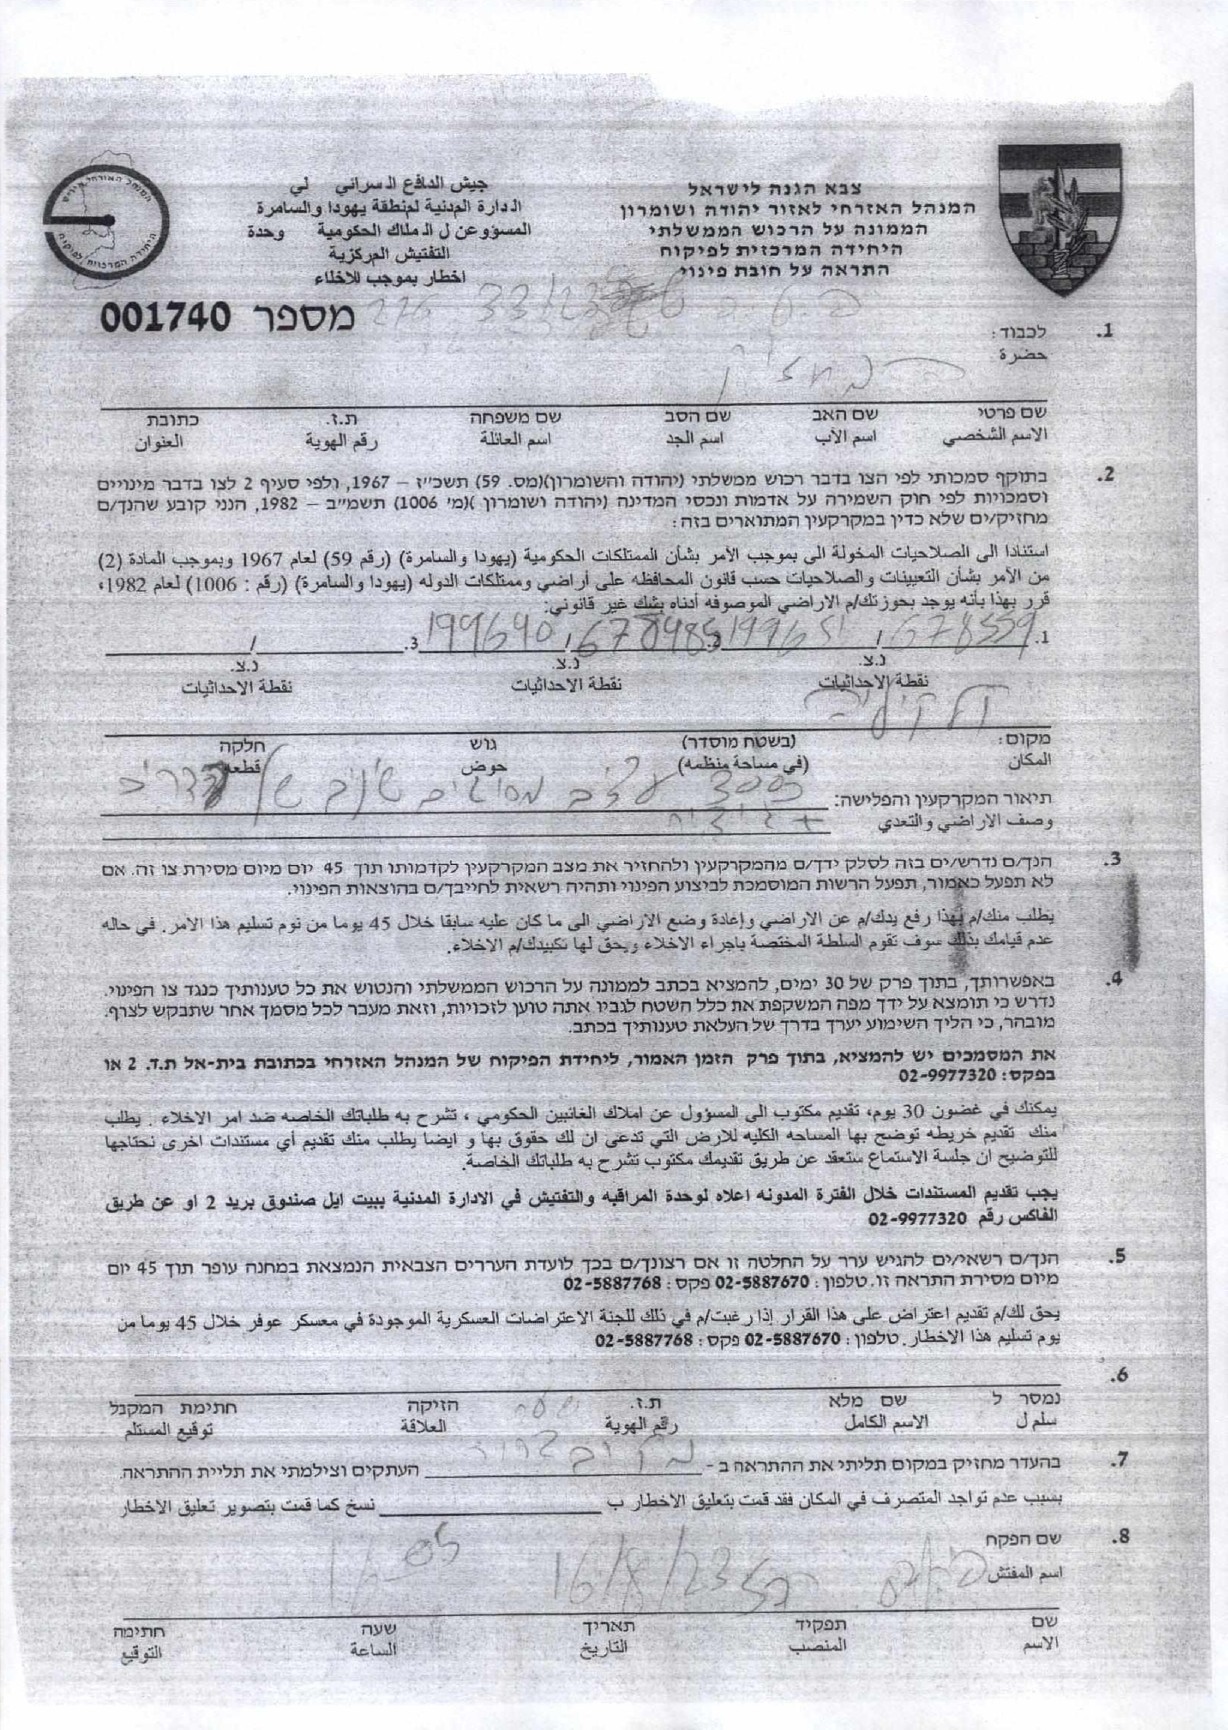 צבא הגנה לישראל
המנהל האזרחי לאזור יהודה ושומרון
הממונה על הרכוש הממשלתי
היחידה המרכזית לפיקוח
התראה על חובת פינוי
جيش الدافع السرائي لي
الدارة المدنية لمنطقة يهودا والسامرة
المسؤوعن ل الملاك الحكومية وحدة
التفتيش المركزية
اخطار بموجب للاخلاء
המנהל האזרחי איו"ש
היחידה המרכזית לפיקוח
מספר 001740
1. לכבוד:
حضرة
המחזיק
שם פרטי שם האב שם הסב שם משפחה ת.ז. כתובת
الاسم الشخصي اسم الأب اسم الجد اسم العائلة رقم الهوية العنوان
2. בתוקף סמכותי לפי הצו בדבר רכוש ממשלתי (יהודה והשומרון)(מס. 59) תשכ"ז – 1967, ולפי סעיף 2 לצו בדבר מינויים
וסמכויות לפי חוק השמירה על אדמות ונכסי המדינה (יהודה ושומרון )(מ' 1006) תשמ"ב – 1982, הנני קובע שהנך/ם
מחזיק/ים שלא כדין במקרקעין המתוארים בזה:
استنادا الى الصلاحيات المخولة الى بموجب الأمر بشأن الممتلكات الحكومية (يهودا والسامرة) (رقم 59) لعام 1967 وبموجب المادة (2)
من الأمر بشأن التعيينات والصلاحيات حسب قانون المحافظه على أراضي وممتلكات الدوله (يهودا والسامرة) (رقم : 1006) لعام 1982،
قرر بهذا بأنه يوجد بحوزتك/م الاراضي الموصوفه أدناه بشك غير قانوني:
1. 678559 / 199651 678485 / 199690 3. /
נ.צ. נ.צ. נ.צ.
نقطة الاحداثيات نقطة الاحداثيات نقطة الاحداثيات
מקום: (בשטח מוסדר) גוש חלקה
المكان (في مساحة منظمه) حوض قطعه
תיאור המקרקעין והפלישה: כ 300 עצים
وصف الاراضي والتعدي + גידור
3. הנך/ם נדרש/ים בזה לסלק ידך/ם מהמקרקעין ולהחזיר את מצב המקרקעין לקדמותו תוך 45 יום מיום מסירת צו זה. אם
לא תפעל כאמור, תפעל הרשות המוסמכת לביצוע הפינוי ותהיה רשאית לחייבך/ם בהוצאות הפינוי.
يطلب منك/م بهذا رفع يدك/م عن الاراضي وإغادة وضع الاراضي الى ما كان عليه سابقا خلال 45 يوما من نوم تسليم هذا الامر. في حاله
عدم قيامك بذلك سوف تقوم السلطة المختصة باجراء الاخلاء ويحق لها تكبيدك/م الاخلاء.
4. באפשרותך, בתוך פרק של 30 ימים, להמציא בכתב לממונה על הרכוש הממשלתי והנטוש את כל טענותיך כנגד צו הפינוי.
נדרש כי תומצא על ידך מפה המשקפת את כלל השטח לגביו אתה טוען לזכויות, וזאת מעבר לכל מסמך אחר שתבקש לצרף.
מובהר, כי הליך השימוע יערך בדרך של העלאת טענותיך בכתב.
את המסמכים יש להמציא, בתוך פרק הזמן האמור, ליחידת הפיקוח של המנהל האזרחי בכתובת בית-אל ת.ד. 2 או
בפקס: 02-9977320
يمكنك في غضون 30 يوم، تقديم مكتوب الى المسؤول عن املاك الغانبين الحكومي ، تشرح به طلباتك الخاصه ضد امر الاخلاء . يطلب
منك تقديم خريطه توضح بها المساحه الكليه للارض التي تدعى ان لك حقوق بها و ايضا يطلب منك تقديم أي مستندات اخرى نحتاجها
للتوضيح ان جلسة الاستماع ستعقد عن طريق تقديمك مكتوب تشرح به طلباتك الخاصة.
يجب تقديم المستندات خلال الفترة المدونه اعلاه لوحدة المراقبه والتفتيش في الادارة المدنية ببيت ايل صندوق بريد 2 او عن طريق
الفاكس رقم 02-9977320
5. הנך/ם רשאי/ים להגיש ערר על החלטה זו אם רצונך/ם בכך לועדת העררים הצבאית הנמצאת במחנה עופר תוך 45 יום
מיום מסירת התראה זו. טלפון: 02-5887670 פקס: 02-5887768
يحق لك/م تقديم اعتراض على هذا القرار إذا رغبت/م في ذلك للجنة الاعتراضات العسكرية الموجودة في معسكر عوفر خلال 45 يوما من
يوم تسليم هذا الاخطار. טלפון: 02-5887670 פקס: 02-5887768
6.
נמסר ל שם מלא ת.ז. הזיקה חתימת המקבל
سلم ل الاسم الكامل رقم الهوية العلاقة توقيع المستلم
7. בהעדר מחזיק במקום תליתי את ההתראה ב - העתקים וצילמתי את תליית ההתראה.
بسبب عدم تواجد المتصرف في المكان فقد قمت بتعليق الاخطار ب نسخ كما قمت بتصوير تعليق الاخطار
8. שם הפקח
اسم المفتش 16/8/23
שם תפקיד תאריך שעה חתימה
الاسم المنصب التاريخ الساعة التوقيع